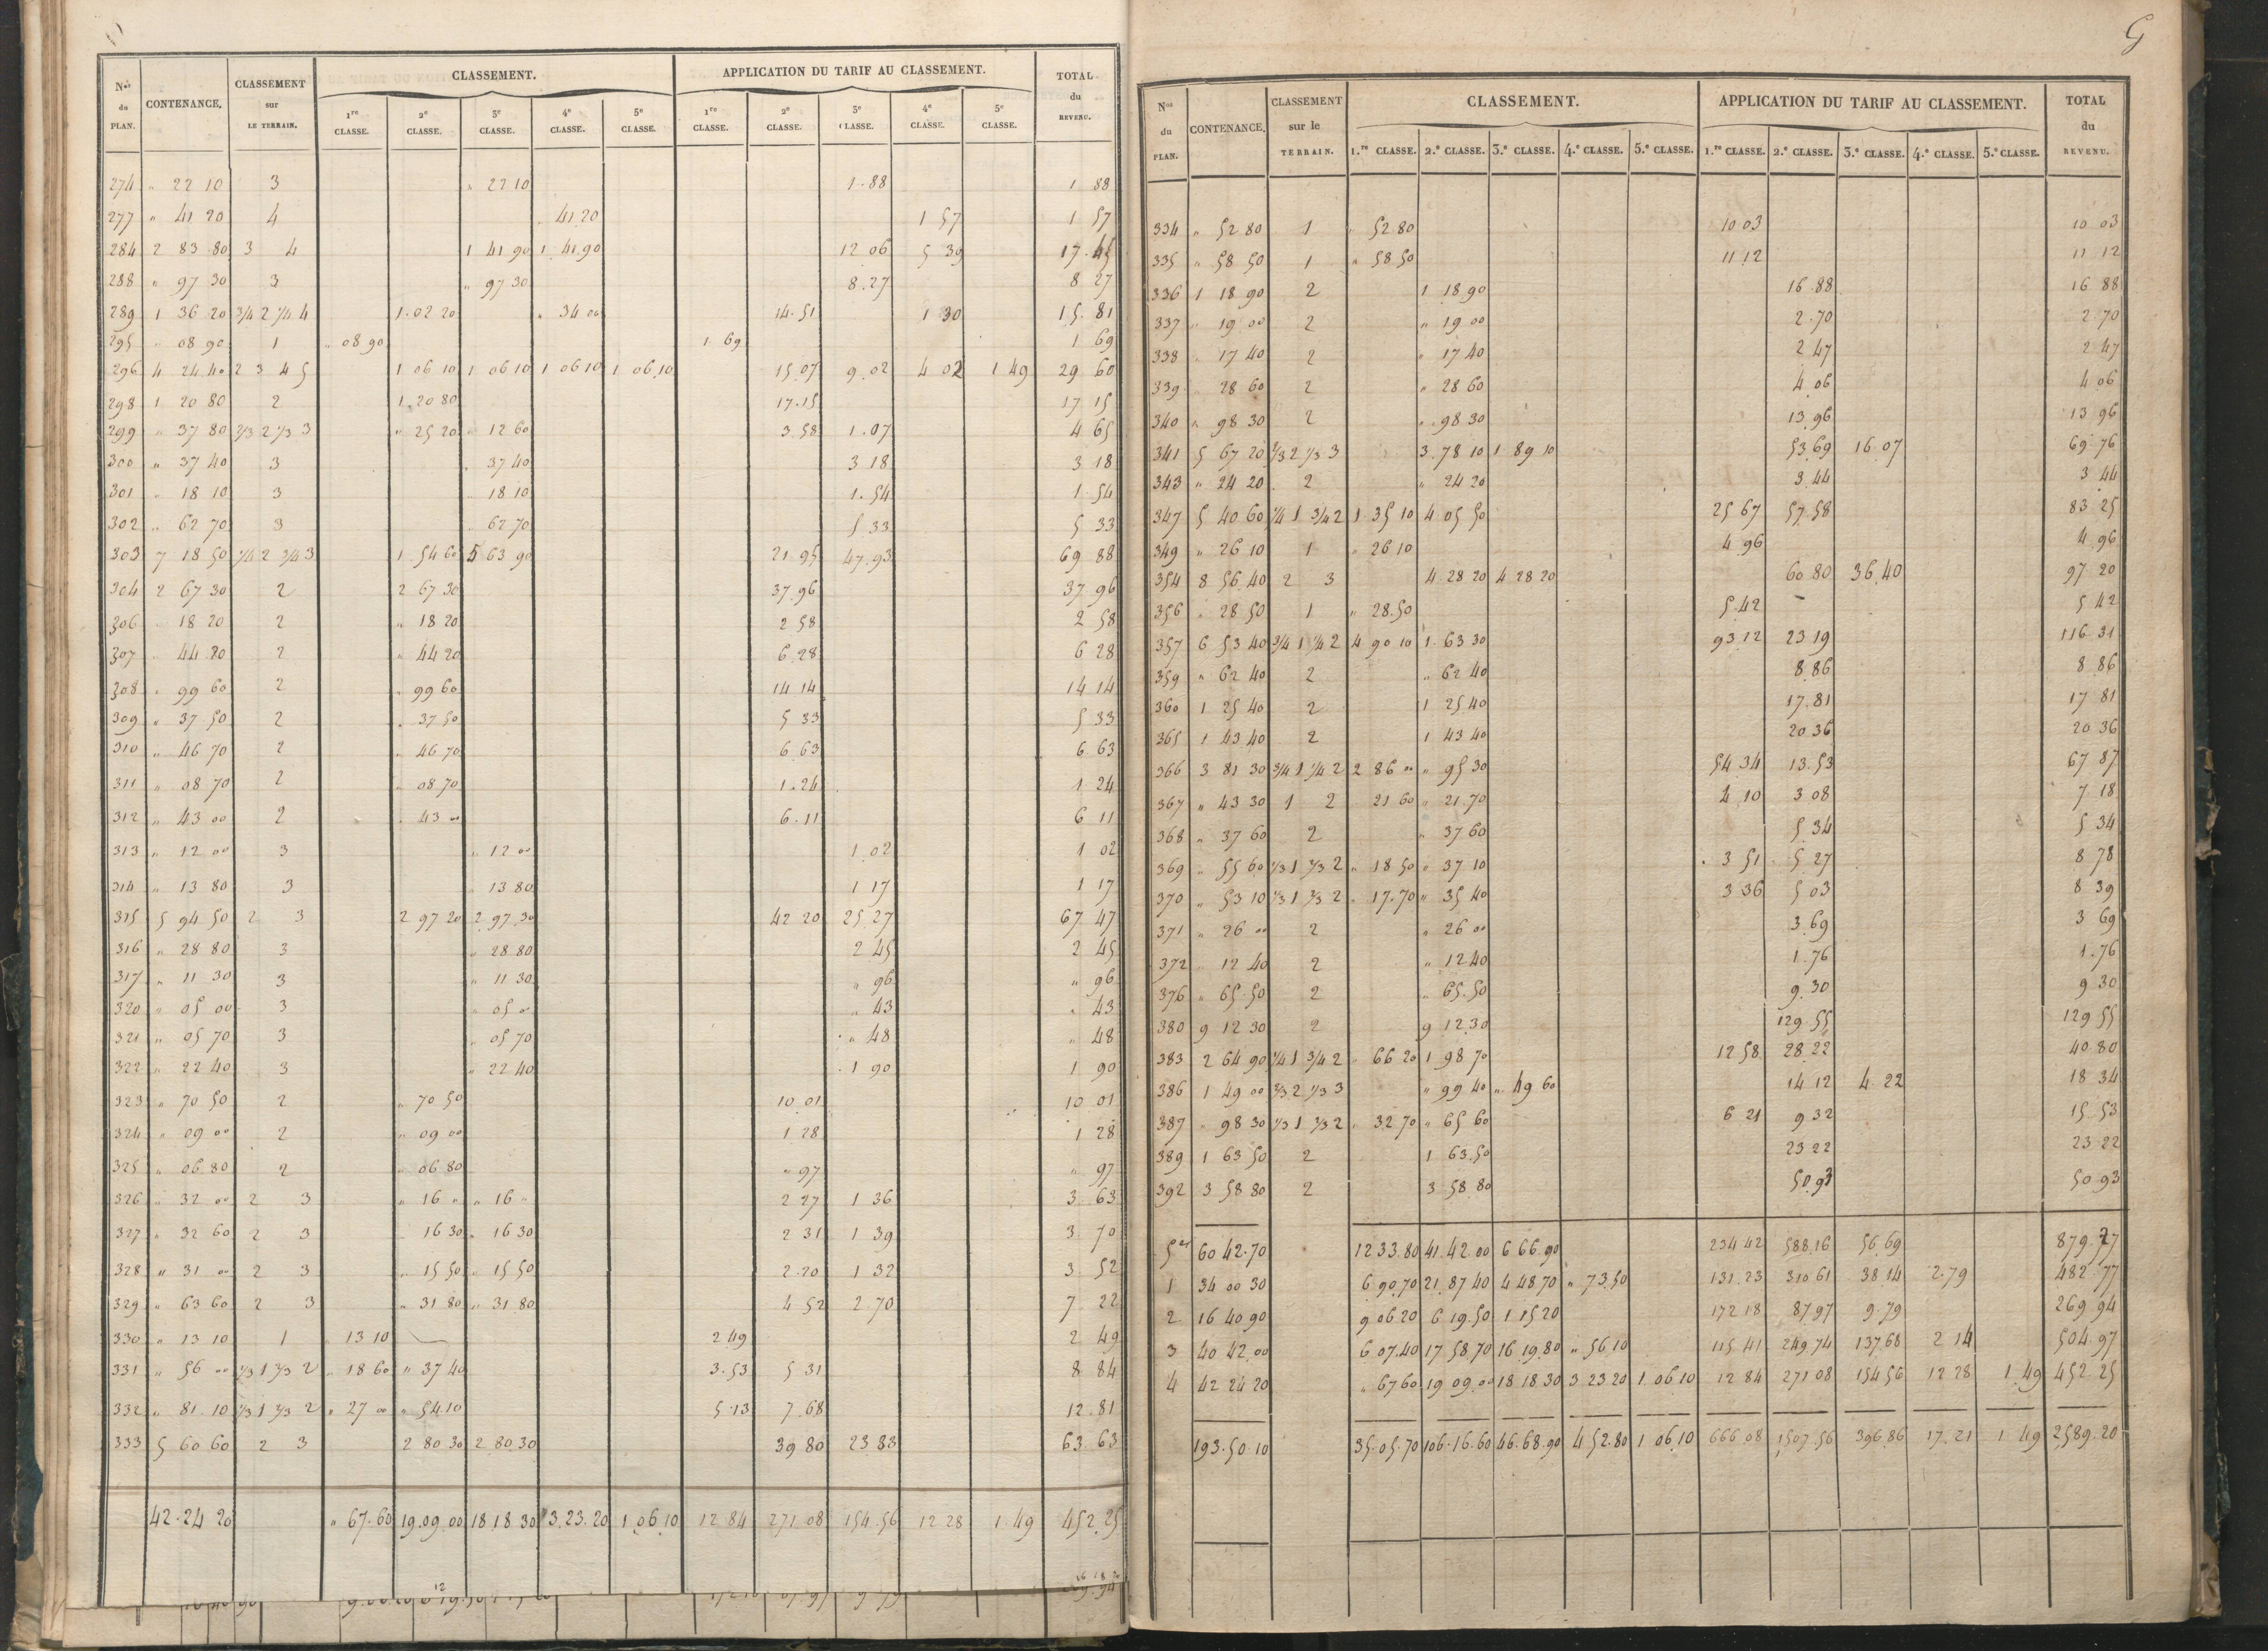 Nos du PLAN. CONTENANCE. CLASSEMENT sur LE TERRAIN. CLASSEMENT. APPLICATION DU TARIF AU CLASSEMENT. TOTAL du REVENU.
1re CLASSE. 2e CLASSE. 3e CLASSE. 4e CLASSE. 5e CLASSE. 1re CLASSE. 2e CLASSE. 3e CLASSE. 4e CLASSE. 5e CLASSE.
274 " 22 10 3 " 22 10 1.88 1 88
277 " 41 20 4 " 41.20 1 57 1 57
284 2 83 80 3 4 1 41 90 1 41.90 12 06 5 39 17.45
288 " 97 30 3 " 97 30 8.27 8 27
289 1 36 20 3/4 2 1/4 4 1.02 20 " 34 00 14.51 1 30 15.81
295 " 08 90 1 " 08 90 1 69 1 69
296 4 24 40 2 3 4 5 1 06 10 1 06 10 1 06 10 1 06.10 15.07 9.02 4 02 1 49 29 60
298 1 20 80 2 1.20 80 17.15 17 15
299 " 37 80 2/3 2 1/3 3 " 25 20 " 12 60 3.58 1.07 4 65
300 " 37 40 3 " 37 40 3 18 3 18
301 " 18 10 3 " 18 10 1.54 1 54
302 " 62 70 3 " 62 70 5 33 5 33
303 7 18 50 1/4 2 3/4 3 1 54 60 5 63 90 21 95 47.93 69 88
304 2 67 30 2 2 67 30 37.96 37 96
306 " 18 20 2 " 18 20 2 58 2 58
307 " 44 20 2 " 44 20 6.28 6 28
308 " 99 60 2 " 99 60 14 14 14 14
309 " 37 50 2 " 37 50 5 33 5 33
310 " 46 70 2 " 46 70 6 63 6 63
311 " 08 70 2 " 08 70 1.24 1 24
312 " 43 00 2 " 43 00 6.11 6 11
313 " 12 00 3 " 12 00 1 02 1 02
314 " 13 80 3 " 13 80 1 17 1 17
315 5 94 50 2 3 2 97 20 2 97.30 42 20 25.27 67 47
316 " 28 80 3 " 28 80 2 45 2 45
317 " 11 30 3 " 11 30 " 96 " 96
320 " 05 00 3 " 05 00 " 43 " 43
321 " 05 70 3 " 05 70 " 48 " 48
322 " 22 40 3 " 22 40 1 90 1 90
323 " 70 50 2 " 70 50 10 01 10 01
324 " 09 00 2 " 09 00 1 28 1 28
325 " 06 80 2 " 06 80 " 97 " 97
326 " 32 00 2 3 " 16 " " 16 " 2 27 1 36 3 63
327 " 32 60 2 3 16 30 " 16 30 2 31 1 39 3 70
328 " 31 00 2 3 " 15 50 " 15.50 2.20 1 32 3 52
329 " 63 60 2 3 " 31 80 " 31 80 4 52 2.70 7 22
330 " 13 10 1 " 13 10 2 49 2 49
331 " 56 00 1/3 1 2/3 2 " 18 60 " 37 40 3.53 5 31 8 84
332 " 81.10 1/3 1 2/3 2 " 27 00 " 54.10 5.13 7.68 12.81
333 5 60 60 2 3 2 80 30 2 80.30 39 80 23.83 63 63
42.24 20 " 67.60 19.09.00 18.18.30 3.23.20 1.06.10 12 84 271.08 154.56 12 28 1.49 452.25
G
Nos du PLAN. CONTENANCE. CLASSEMENT sur le TERRAIN. CLASSEMENT. APPLICATION DU TARIF AU CLASSEMENT. TOTAL du REVENU.
1.re CLASSE. 2.e CLASSE. 3.e CLASSE. 4.e CLASSE. 5.e CLASSE. 1.re CLASSE. 2.e CLASSE. 3.e CLASSE. 4.e CLASSE. 5.e CLASSE.
334 " 52 80 1 " 52.80 10 03 10 03
335 " 58 50 1 " 58 50 11 12 11 12
336 1 18 90 2 1 18 90 16.88 16 88
337 " 19 00 2 " 19 00 2.70 2 70
338 " 17 40 2 " 17 40 2 47 2 47
339 " 28 60 2 " 28 60 4.06 4 06
340 " 98 30 2 " 98 30 13.96 13 96
341 5 67 20 2/3 2 1/3 3 3.78 10 1.89 10 53.69 16.07 69 76
343 " 24 20 2 " 24 20 3.44 3 44
347 5 40 60 1/4 1 3/4 2 1 35 10 4 05 50 25 67 57.58 83 25
349 " 26 10 1 " 26 10 4 96 4 96
354 8 56 40 2 3 4.28 20 4.28 20 60.80 36.40 97 20
356 " 28 50 1 " 28.50 5.42 5 42
357 6 53 40 3/4 1 1/4 2 4 90 10 1.63 30 93.12 23 19 116 31
359 " 62 40 2 " 62 40 8.86 8 86
360 1 25 40 2 1 25.40 17.81 17 81
365 1 43 40 2 1 43 40 20 36 20 36
366 3 81 30 3/4 1 1/4 2 2 86 00 " 95 30 54 34 13.53 67 87
367 " 43 30 1 2 21 60 " 21.70 4.10 3 08 7.18
368 " 37 60 2 " 37 60 5 34 5 34
369 " 55 60 1/3 1 2/3 2 " 18 50 " 37 10 3 51 5 27 8 78
370 " 53 10 1/3 1 2/3 2 " 17.70 " 35 40 3 36 5 03 8 39
371 " 26 00 2 " 26 00 3.69 3 69
372 " 12 40 2 " 12 40 1.76 1.76
376 " 65 50 2 " 65.50 9.30 9 30
380 9 12 30 2 9 12.30 129.55 129 55
383 2 64 90 1/4 1 3/4 2 " 66 20 1 98 70 12 58 28.22 40.80
386 1 49 00 2/3 2 1/3 3 " 99 40 " 49 60 14 12 4.22 18 34
387 " 98 30 1/3 1 2/3 2 " 32 70 " 65 60 6 21 9 32 15.53
389 1 63 50 2 1 63.50 23 22 23 22
392 3 58 80 2 3 58 80 50.93 50 93
5 60 42.70 12 33.80 41.42.00 6 66.90 234 42 588.16 56.69 879.27
1 34 00 30 6.90.70 21.87 40 4 48.70 " 73.50 131.23 310 61 38 14 2.79 482.77
2 16 40 90 9 06.20 6 19.50 1 15 20 172 18 87 97 9.79 269 94
3 40 42.00 6 07.40 17 58.70 16 19.80 " 56.10 115 41 249.74 137.68 2 14 504.97
4 42 24 20 " 67 60 19 09.00 18 18.30 3 23 20 1.06 10 12 84 271 08 154 56 12 28 1.49 452.25
193.50 10 35.05.70 106.16.60 46.68.90 4.52.80 1.06.10 666 08 1507.56 396.86 17.21 1 49 2589.20